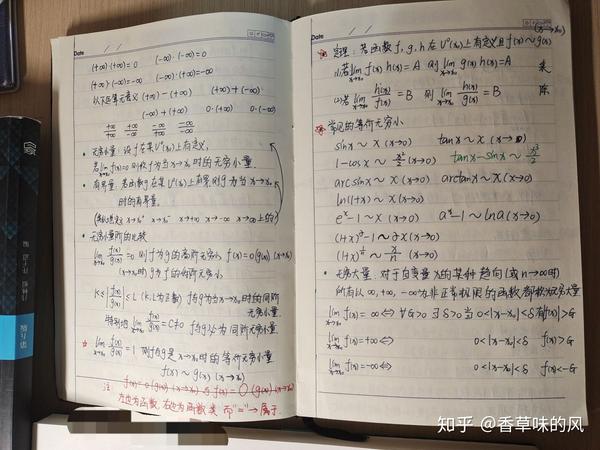 Date
(+∞)·(+∞)=0 (-∞)·(-∞)=0
(+∞)·(-∞)=-∞ (-∞)·(+∞)=-∞
以下运算无意义 (+∞)-(+∞) (+∞)+(-∞)
(-∞)+(+∞) 0·(+∞) 0·(-∞)
+∞/+∞ -∞/+∞ +∞/-∞ -∞/-∞
• 无穷小量: 设f在某U°(x₀)上有定义,
若lim x→x₀ f(x)=0 则称f为当x→x₀时的无穷小量.
• 有界量: 若函数g在某U°(x₀)上有界 则g为当x→x₀
时的有界量.
(类似定义 x→x₀⁺ x→x₀⁻ x→+∞ x→-∞ x→∞上的)
• 无穷小量阶的比较
lim x→x₀ f(x)/g(x)=0 则f为g的高阶无穷小 f(x)=o(g(x)) (x→x₀)
(x→x₀时) g为f的低阶无穷小
K≤|f(x)/g(x)|≤L (K,L为正数) f与g为当x→x₀时的同阶
无穷小量.
特别地 lim x→x₀ f(x)/g(x)=C≠0 f与g必为同阶无穷小量
☆ lim x→x₀ f(x)/g(x)=1 则f与g是x→x₀时的等价无穷小量
f(x)~g(x) (x→x₀)
注: f(x)=o(g(x)) (x→x₀) f(x)=O(g(x)) (x→x₀)
左边为函数, 右边为函数类 而"="→属于.
Date
(x→x₀)
定理: 若函数f, g, h 在U°(x₀)上有定义且f(x)~g(x)
(1)若lim x→x₀ f(x)h(x)=A 则 lim x→x₀ g(x)h(x)=A 乘
(2)若 lim x→x₀ h(x)/f(x)=B 则 lim x→x₀ h(x)/g(x)=B 除
常见的等价无穷小
sinx~x (x→0) tanx~x (x→0)
1-cosx~x²/2 (x→0) tanx-sinx~x³/2
arcsinx~x (x→0) arctanx~x (x→0)
ln(1+x)~x (x→0)
eˣ-1~x (x→0) aˣ-1~lna (x→0)
(1+x)ᵅ-1~αx (x→0)
(1+x)^(1/n)~x/n (x→0)
• 无穷大量 对于自变量x的某种趋向(或n→∞时)
所有以∞,+∞,-∞为非正常极限的函数都称为无穷大量
lim x→x₀ f(x)=∞⇔∀G>0 ∃δ>0 当0<|x-x₀|<δ有|f(x)|>G
lim x→x₀ f(x)=+∞⇔ 0<|x-x₀|<δ f(x)>G
lim x→x₀ f(x)=-∞⇔ 0<|x-x₀|<δ f(x)<-G
知乎 @香草味的风